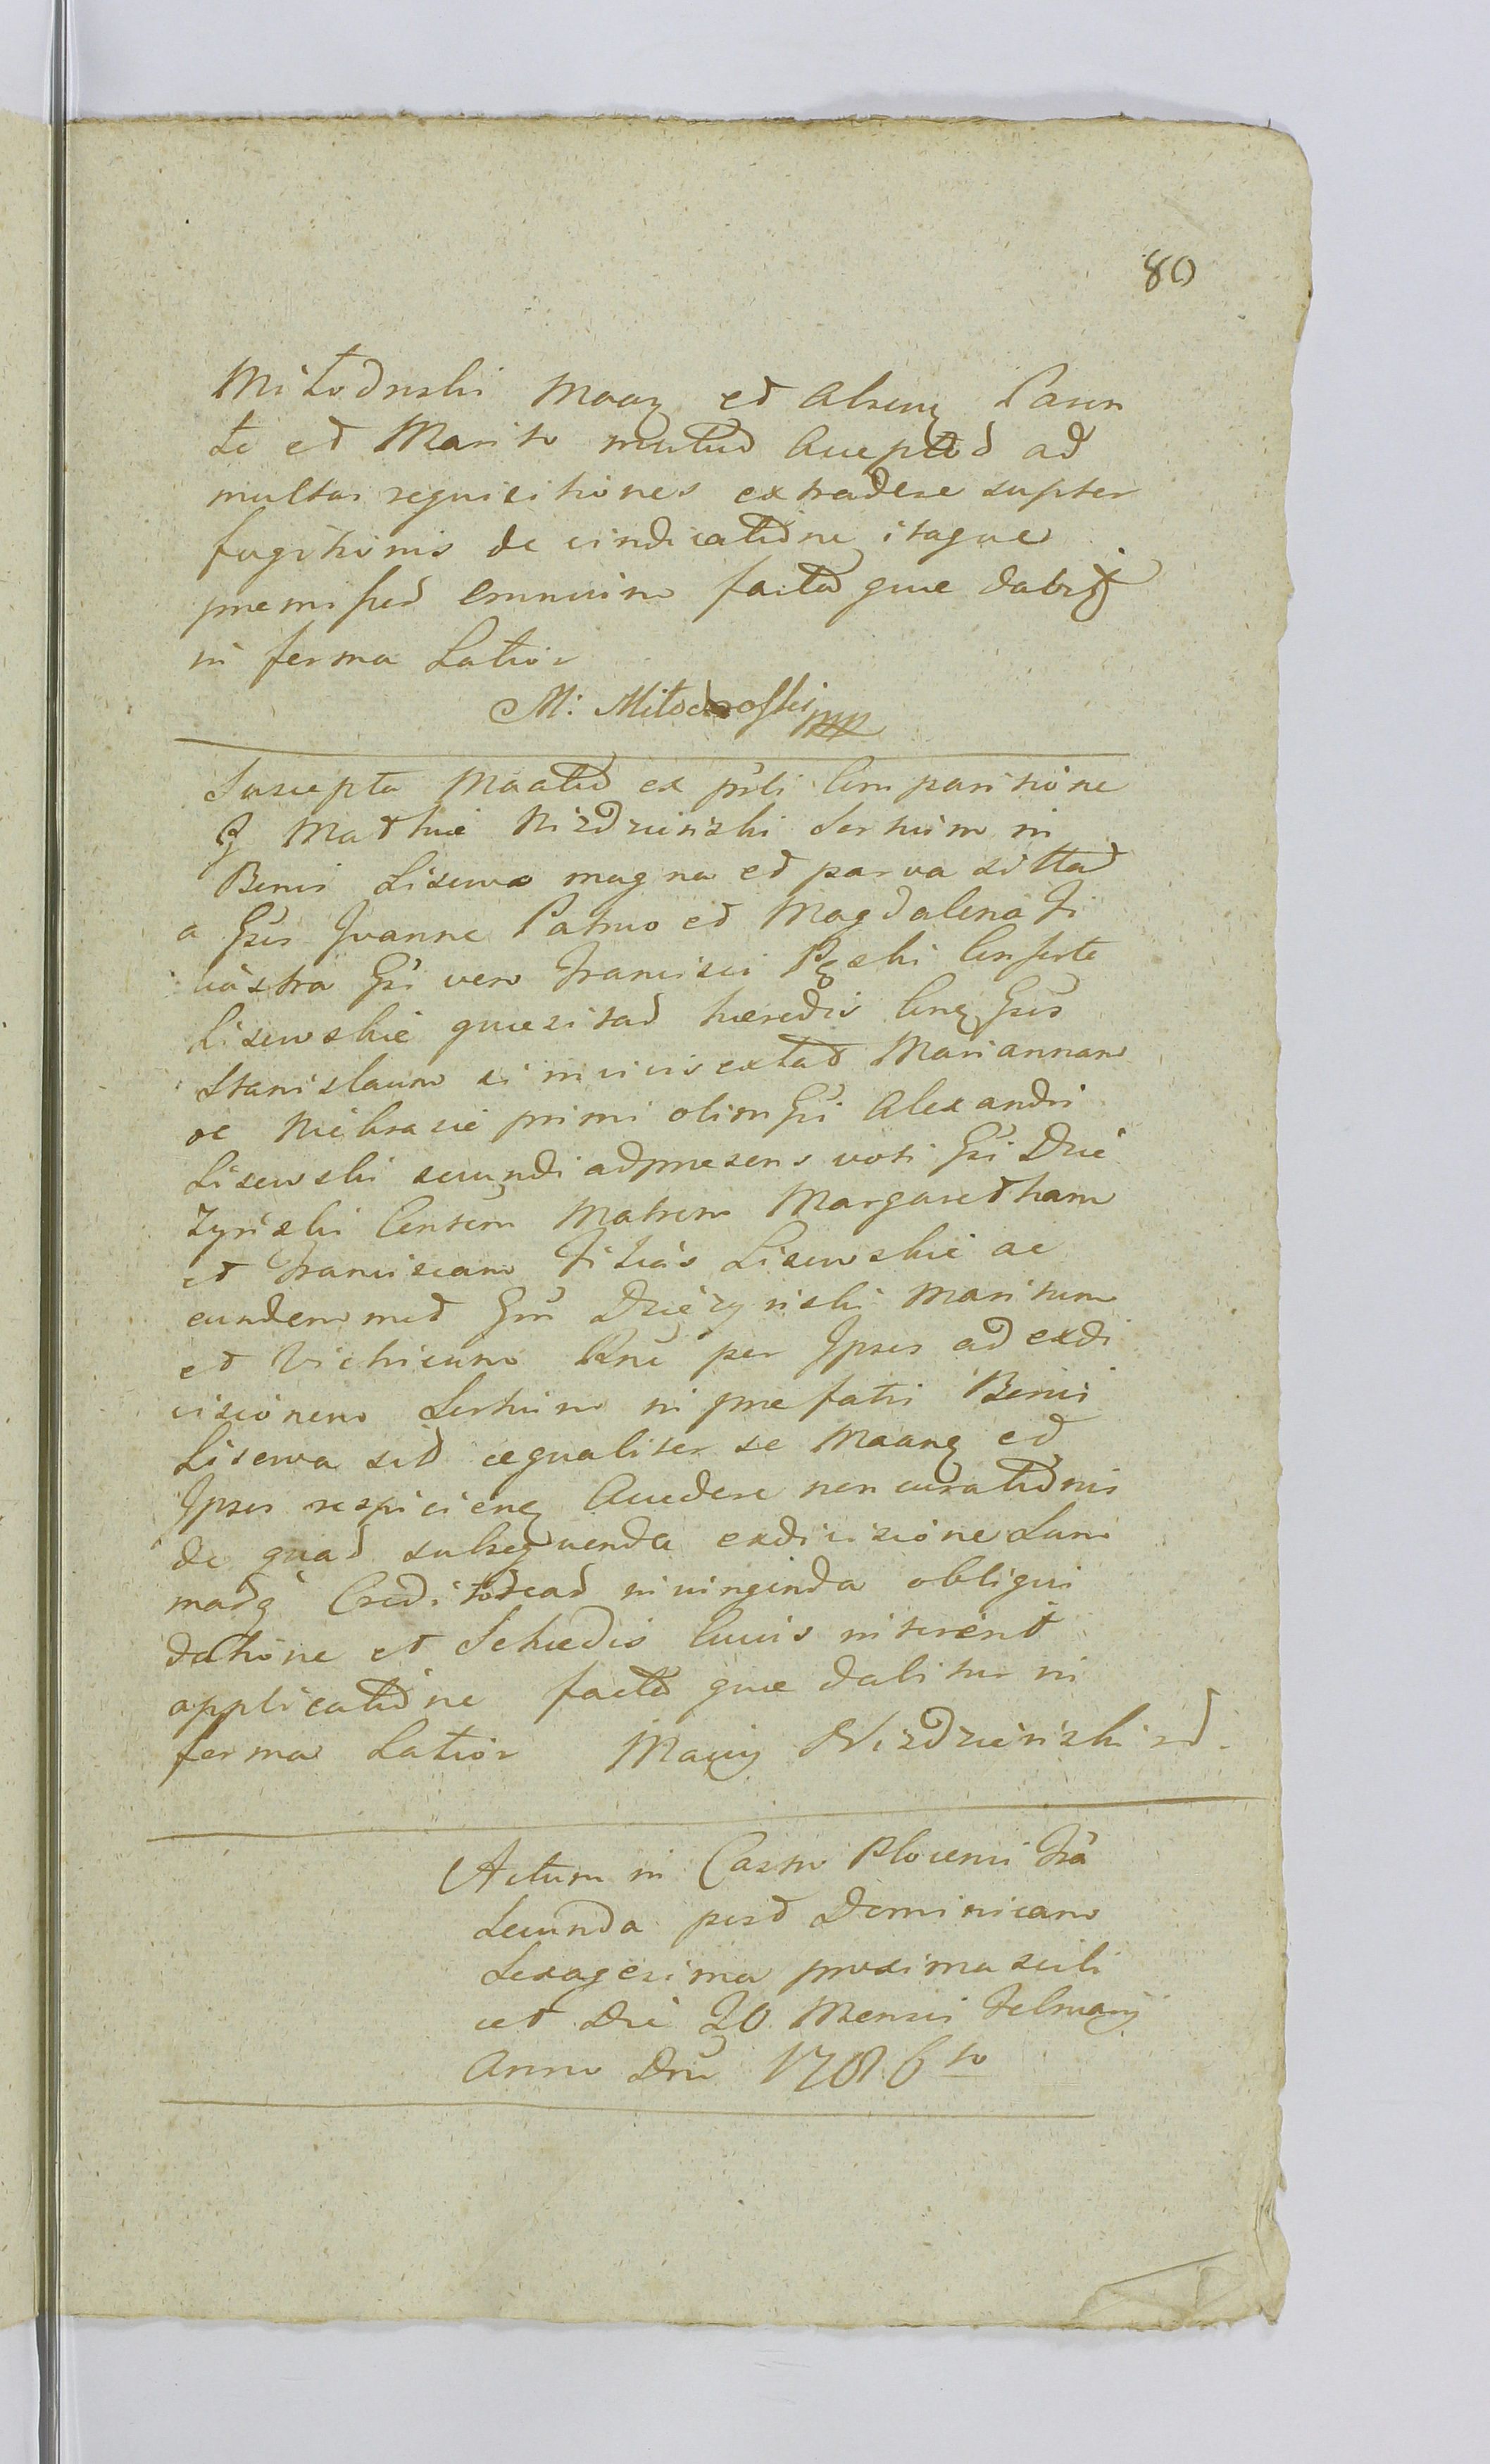 80
Miłodroski Maaꝫ et absenꝫ Paren
te et Marito mutuo Accepto ad
multas requisitiones extradere supter
fugitionis de vindicatione itaque
premissor omnium facta que dabit
in forma Latior
M: Miłodroski mp
Suscepta Maatio ex prli Comparitione
G Mathiæ Nizdzinski Sortium in
Bonis Lisewo magna et parva sittar
a Gsis Joanne Patruo et Magdalena Fi
liastra Gsi vero Francisci Conforte
Lisewskie quæsitar hæredis Conꝫ Gsos
Stanislaum si in vivis extat Mariannam
de primi olim Gsi Alexandri
Lisewski secundi adpræsens voti Gsi Dzie
rzynski Consem Matrem Margaretham
et Franciscam Filias Lisewskie ac
eundemmet Gsm Dzierzynski Maritum
et Victricum Rne per Ipsos ad exdi
visionem Sortium in præfatis Bonis
Lisewa sit æqualiter se Maanꝫ et
Ipsos respicienꝫ Accedere non curationis
de quar subsequenda exdivisione Sum
marꝫ Creditorear obliqui
datione et Schedis Cuius inserent
applicatione facta que dabitur in
forma Latior Maciey Nizdzinski
Actum in Castro Plocensi Fra
Secunda post Dominicam
Sexagesima proxima scili
cet Die 20 Mensis Februarij
Anno Dni 1786to